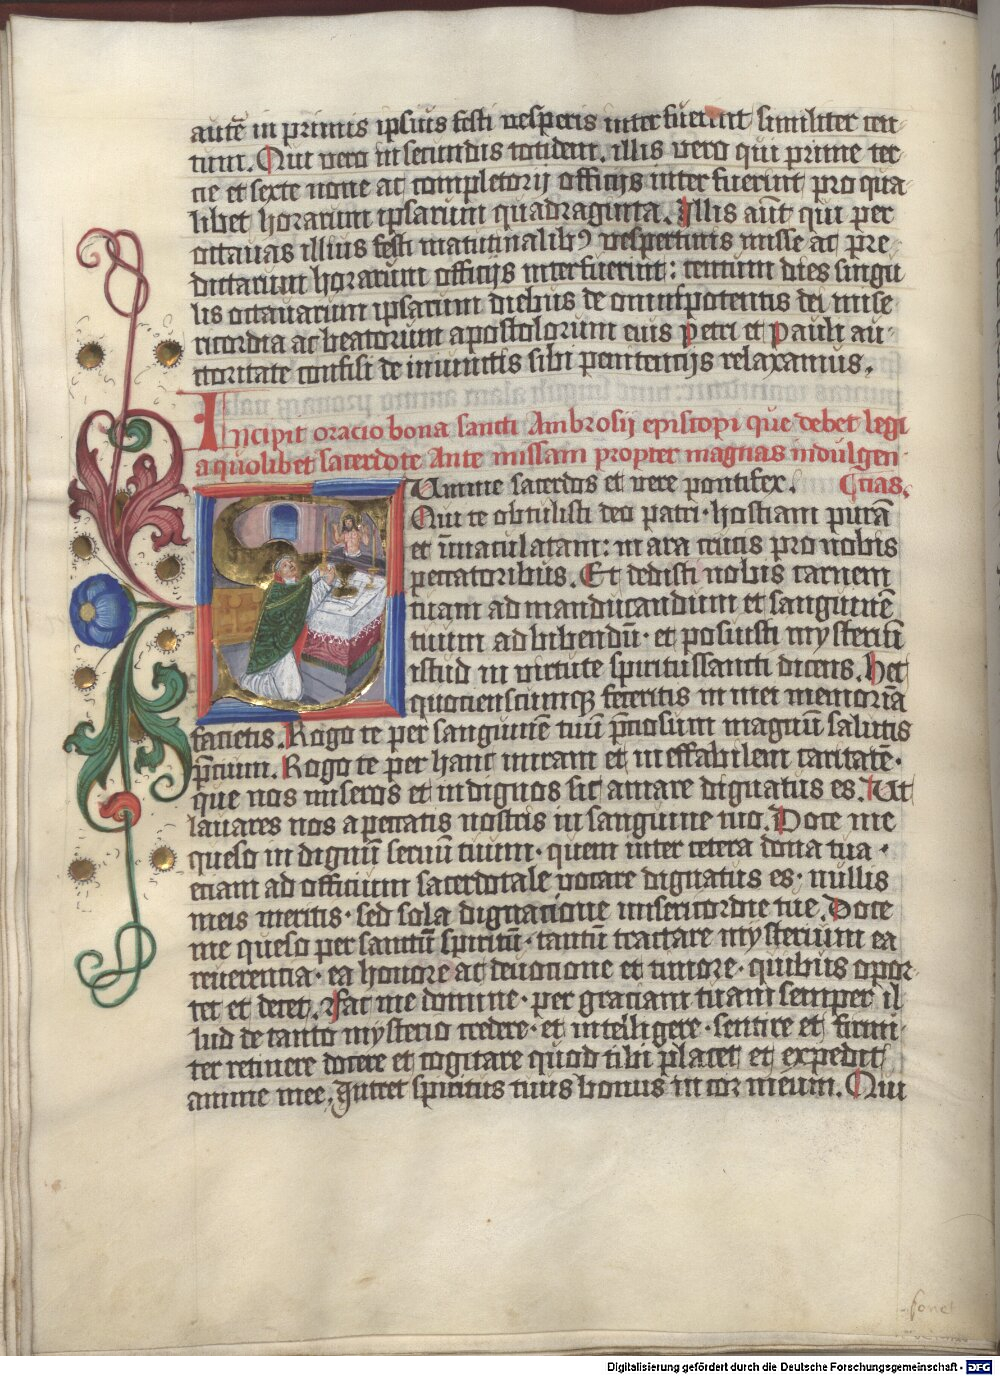 autē in primis ipsius festi vesperis interfuerint similiter cen-
tum. Qui vero in secundis totidem. illis vero qui prime ter-
cie et sexte none ac completorij officijs interfuerint pro qua
libet horarum ipsarum quadraginta. Illis aūt qui per
octauas illius festi matutinalibꝰ vespertinis misse ac pre
dictarum horarum officijs interfuerint: centum dies singu
lis octauarum ipsarum diebus de omnipotentis dei mise
ricordia ac beatorum apostolorum eius Petri et Pauli au-
ctoritate confisi de iniunctis sibi penitencijs relaxamus.
Incipit oracio bona sancti Ambrosij episcopi que debet legi
a quolibet sacerdote Ante missam propter magnas indulgen-
Summe sacerdos et vere pontifex. Ccias.
Qui te obtulisti deo patri· hostiam purā
et īmaculatam: in ara crucis pro nobis
peccatoribus. Et dedisti nobis carnem
tuam ad manducandum et sanguinē
tuum ad bibendū· et posuisti mysteriū
istud in virtute spiritussancti dicens. Hec
quocienscumqꝫ feceritis in mei memoriā
facietis. Rogo te per sanguinē tuū p̄ciosum magnū salutis
p̄cium. Rogo te per hanc miram et ineffabilem caritatē·
que nos miseros et indignos sic amare dignatus es. Ut
lauares nos a peccatis nostris in sanguine tuo. Doce me
queso indignū seruū tuum· quem inter cetera dona tua·
eciam ad officium sacerdotale vocare dignatus es· nullis
meis meritis· sed sola dignacione misericordie tue. Doce
me queso per sanctū spiritū· tantū tractare mysterium ea
reuerentia· ea honore ac deuocione et timore· quibus opor-
tet et decet. Fac me domine· per graciam tuam semper il
lud de tanto mysterio credere· et intelligere· sentire et firmi-
ter retinere docere et cogitare quod tibi placet et expedit
anime mee. Intret spiritus tuus bonus in cor meum. Qui
Digitalisierung gefördert durch die Deutsche Forschungsgemeinschaft - DFG